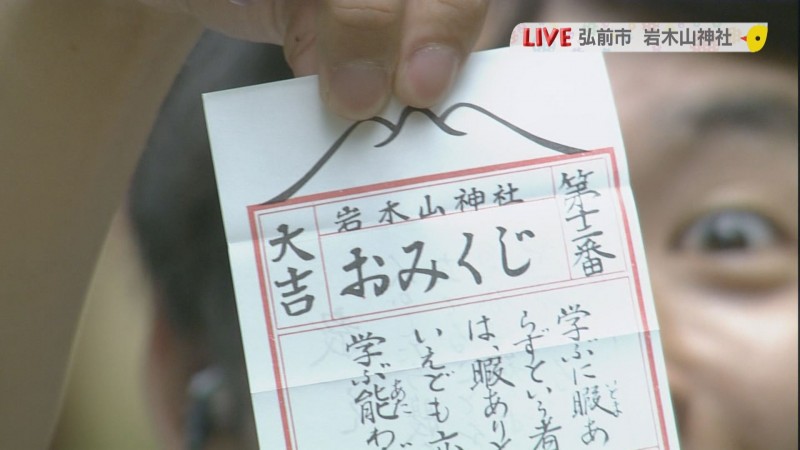 LIVE 弘前市 岩木山神社
第十二番
岩木山神社
おみくじ
大吉
学ぶに暇あ
いとま
らずという者
は、暇ありと
いえども亦
学ぶ能わ
あた